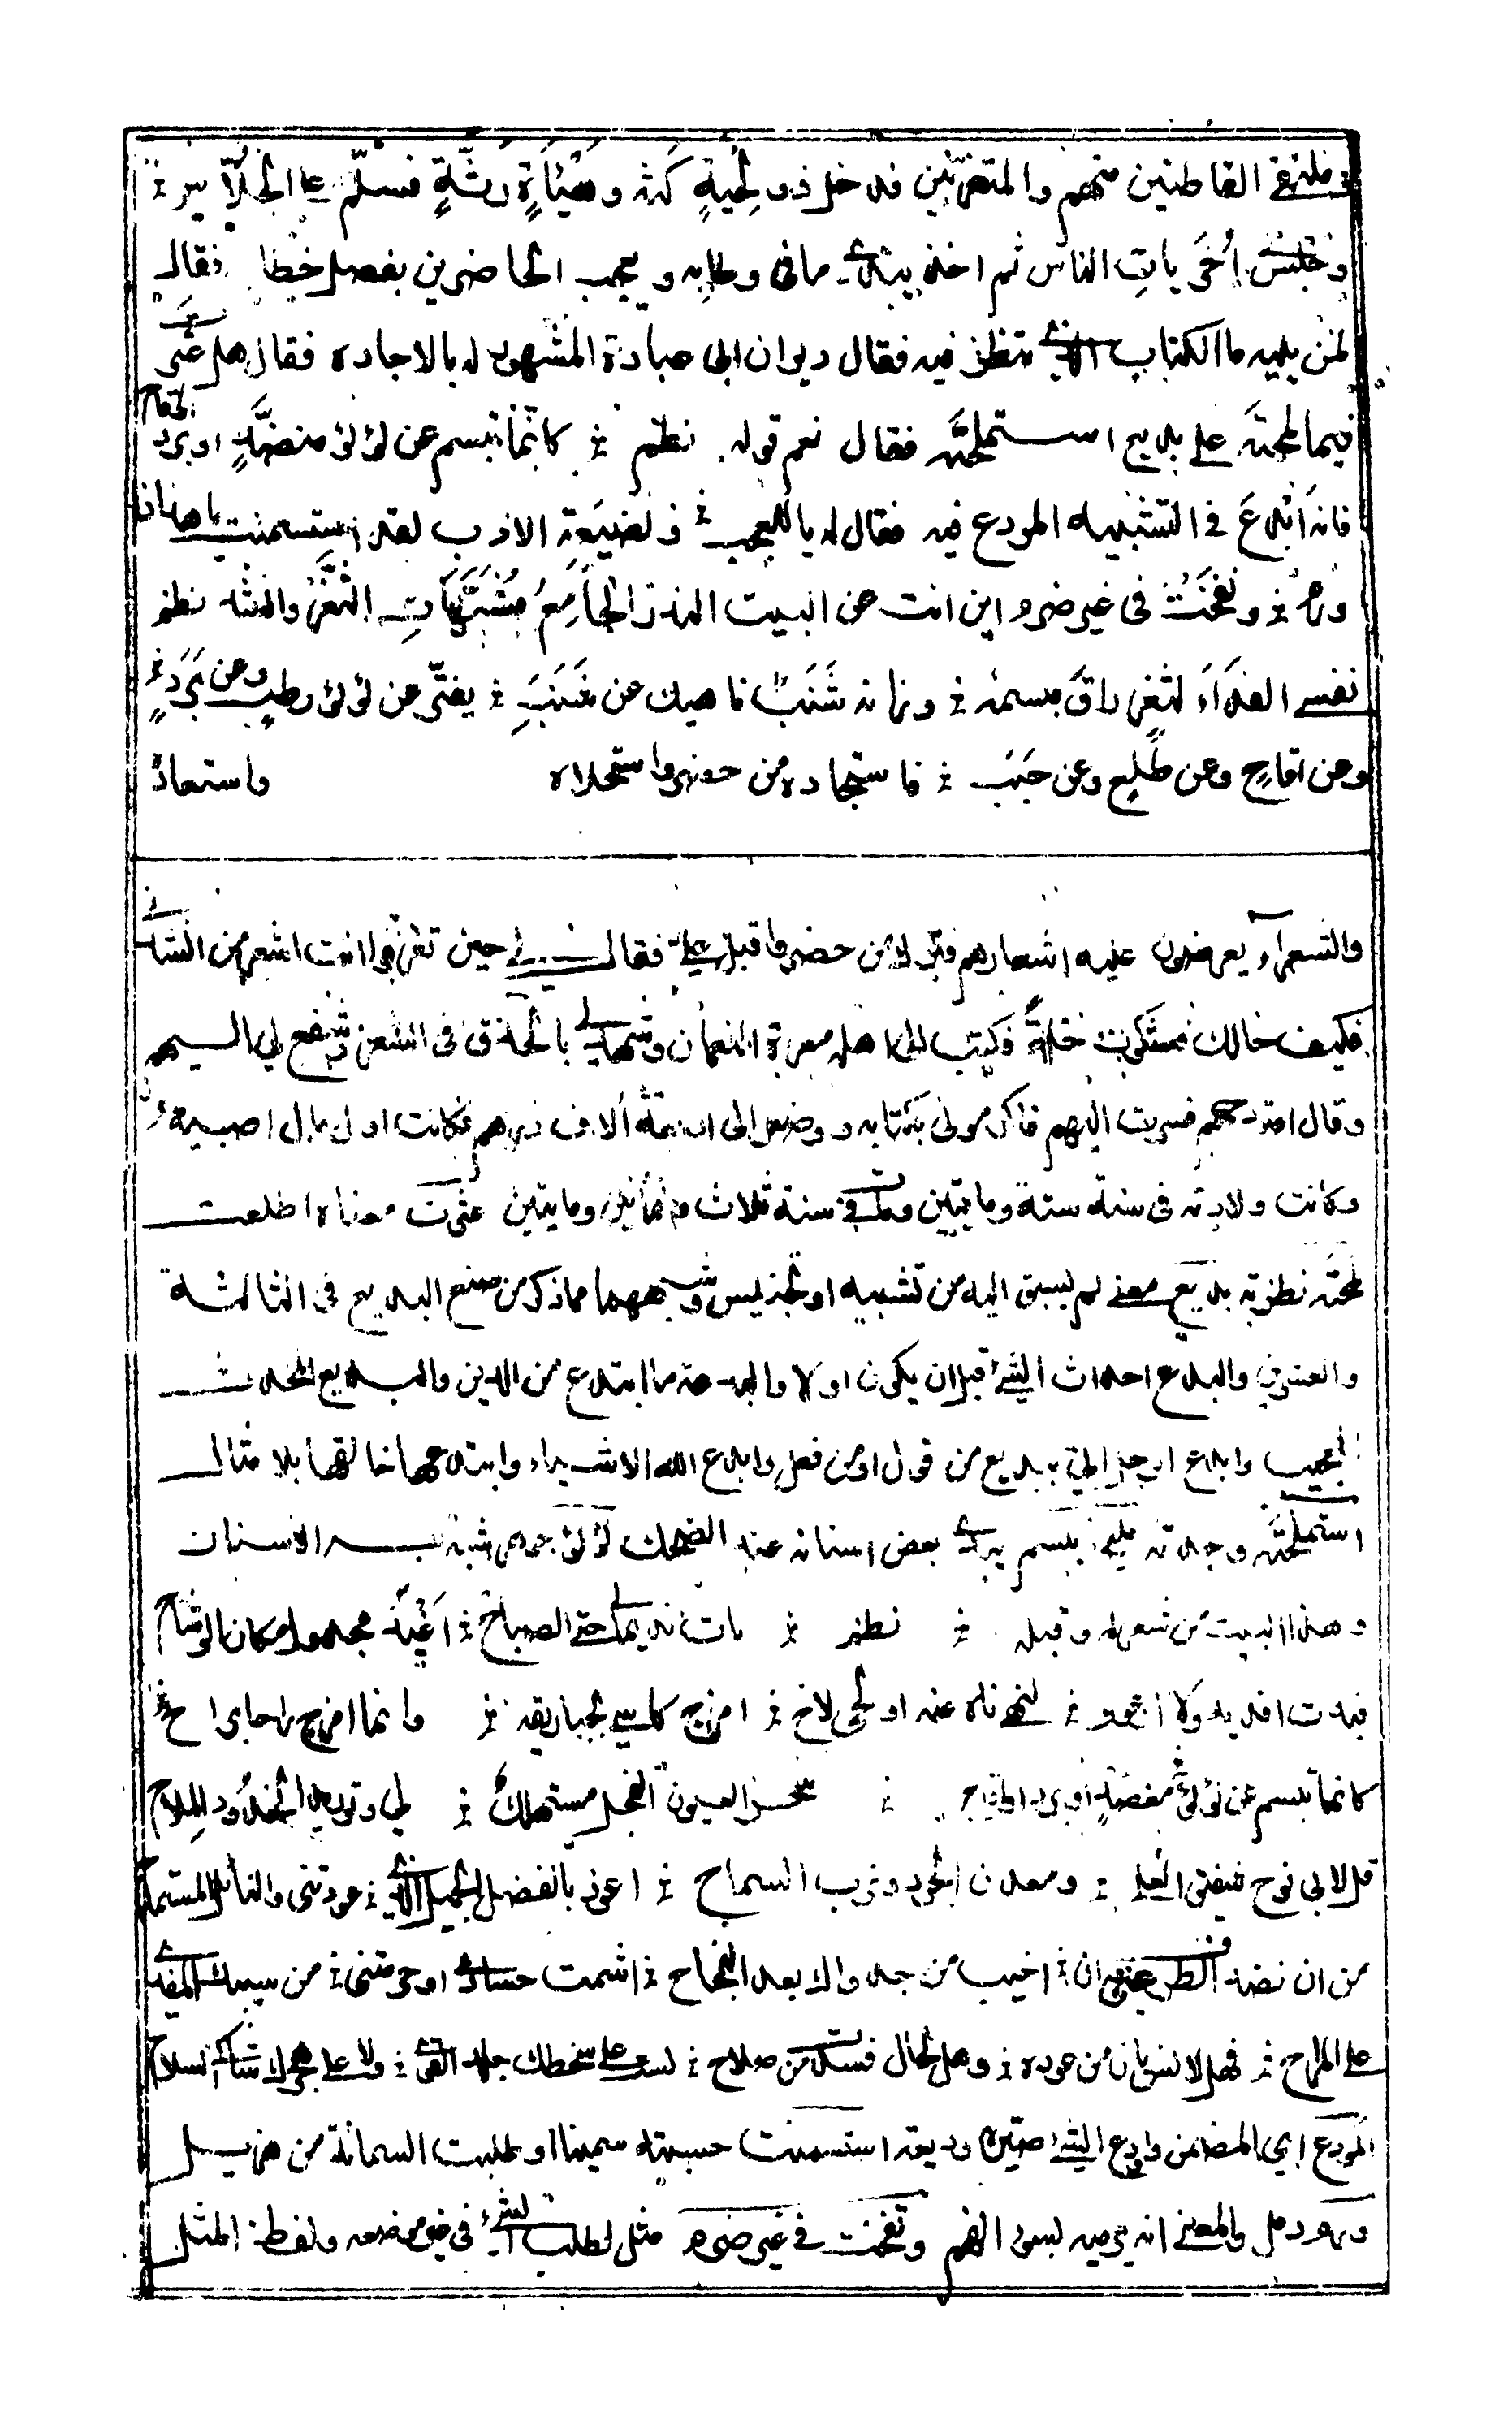 وملتقى القاطنين منهم والمتغربين فدخل ذو لِحْيةٍ كَثة وهَيْأَةٍ رَثَّةٍ فسلّم على الجُلّاس
وجَلَسَ أُخْرَيَاتِ الناس ثم اخذ يبدى ما فى وطابه ويعجب الحاضرين بفصل خطا فقال
لمن يليه ما الكتاب الذى تنظر فيه فقال ديوان ابى عبادة المشهود له بالاجاده فقال هل عثَرْتَ
فيما لمحتَه على بديع استملحتَه فقال نعم قوله نظم كانّما تبسم عن لؤلؤ منضدٍ او برد او اقاح
فانه اَبْدَعَ فى التشبيه المودع فيه فقال له يا للعجب ولضيعَةِ الادب لقد استسمنت يا هذا ذا
ورم ونفَخْتَ فى غير ضرم اين انت عن البيت الندر الجامِعِ مُشَبَّهَاتِ الثَّغْر وانشد نظم
نفسى الفداءُ لثغرٍ راقَ مبسمه وزانه شَنَبٌ ناهيك عن شنَبِ يفترّ عن لؤلؤ رطبٍ وعن بَرَدٍ
وعن اقاحٍ وعن طَلْعٍ وعن حَبَبِ فاستجاده من حضر واستحلاه واستعاد
والشعراء يعرضون عليه اشعارهم فترك من حضر واقبل علىّ فقال لى حين تفرقوا انت اشعر من انشد
فكيف حالك فشكوت خلةً فكتب الى اهل معرة النعمان وشهد لى بالحذق فى الشعر وشفع لى اليهم
وقال امتدحهم فسرت اليهم فاكرمونى بكتابه ووظفوا لى اربعة آلاف درهم فكانت اول مال اصبته
وكانت ولادته فى سنة ستة ومايتين ومات فى سنة ثلاث وثمانين ومايتين عثرت معناه اطلعت
لمحتَه نظرته بديع معنى لم يسبق اليه من تشبيه او تجنيس وشبههما مما ذكر من صنع البديع فى الثالثة
والعشرين والبدع احداث الشئ قبل ان يكون اولا والبدعة ما ابتدع من الدين والبديع المحدث
العجيب وابدع الرجل اتى ببديع من قول او من فعل وابدع الله الاشياء وابتدعها خالقها بلا مثال
استملحتَه وجدته مليحا يبسم يبدى بعض اسنانه عند الضحك لؤلؤ جوهر شبه به الاسنان
وهذا البيت من شعر له وقبله نظم بات نديما لى حتى الصباح اَغْيَدُ مجدول مكان الوشاح
فبت افديه ولا ارعوى لنهى ناه عنه او لحى لاح امزج كاسى بجنا ريقه وانما امزج راحا براح
كانما تبسم عن لؤلؤٍ مفضضٍ او برد او اقاح سحر العيون النجل مستهلكٌ لبى وتوريد الخدود الملاح
قل لابى نوح شقيق العلى ومعدن الجود وترب السماح اعوذ بالفضل الجميل الذى عودتنى والنائل المستماح
من ان نصد الطرف عنى وان اخيب من جدواك بعد النجاح اشمت حسادى او حرمتنى من سيبك المفدى
على المراح فهل لانس بان من عوده وهل لحال فسدت من صلاح لست على سخطك جلد القوى ولا على هجرك شاكى السلاح
المودع اى المضمن واودع الشئ صيره وديعه استسمنت حسبته سمينا او طلبت السمانة من هزيل
ورم دمل والمعنى انه يرميه بسوء الفهم ونفخت فى غير ضرم مثل لطلب الشئ فى غير موضعه ولفظ المثل